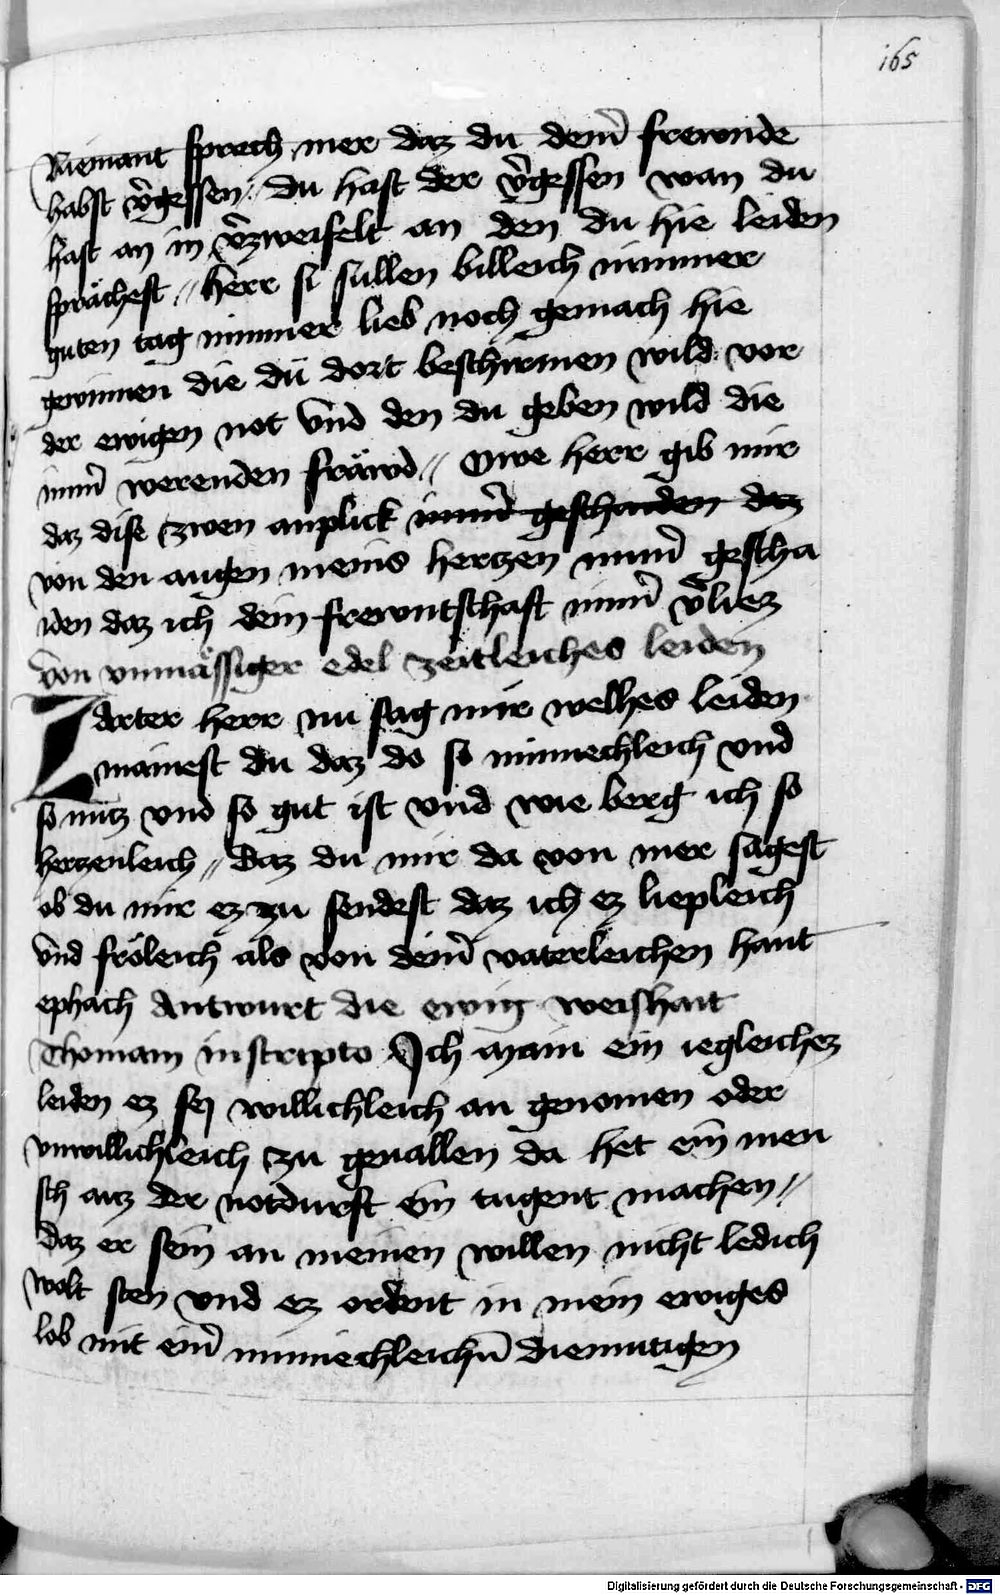 165
Niemant sprech mer daz du deinr̄ frewnde
habst v̄gessen // du hast der v̄gessen wan du
hast an in v̄zweifelt an den du hie leiden
sprächest // herr si sullen billeich nimmer
guten tag nimmer lieb noch gemach hie
gewinnen die du dort beschirmen wild vor
der ewigen not vnd den du geben wild die
imm̄ werenden fräwd // Owe herr gib mir
daz dise zwen anplick nimm̄ geschaiden daz
von den augen meins hertzen nimm̄ gescha
iden daz ich dein frewntschaft nimm̄ v̄liez
von vnmässiger edel zeitleiches leiden
Zarter herr nu sag mir welhes leiden
mainest du daz do so minnechleich vnd
so nutz vnd so gut ist vnd wie berg ich so
hertzenleich // Daz du mir da von mer sagest
ob du mir ez zu sendest daz ich ez liepleich
vnd fröleich als von deinr̄ vaterleichen hant
ephach Antwurt die ewig weishait
Thomam in scripto Ich main ein iegleichez
leiden ez sey willichleich an genomen oder
vnwillichleich zu geuallen da het ein men
sch auz der notdurft ein tugent machen //
daz er sein an meinen willen nicht ledich
wolt sten vnd ez ordent in mein ewiges
lob mit einr̄ minnechleichn̄ diemutigen
Digitalisierung gefördert durch die Deutsche Forschungsgemeinschaft - DFG